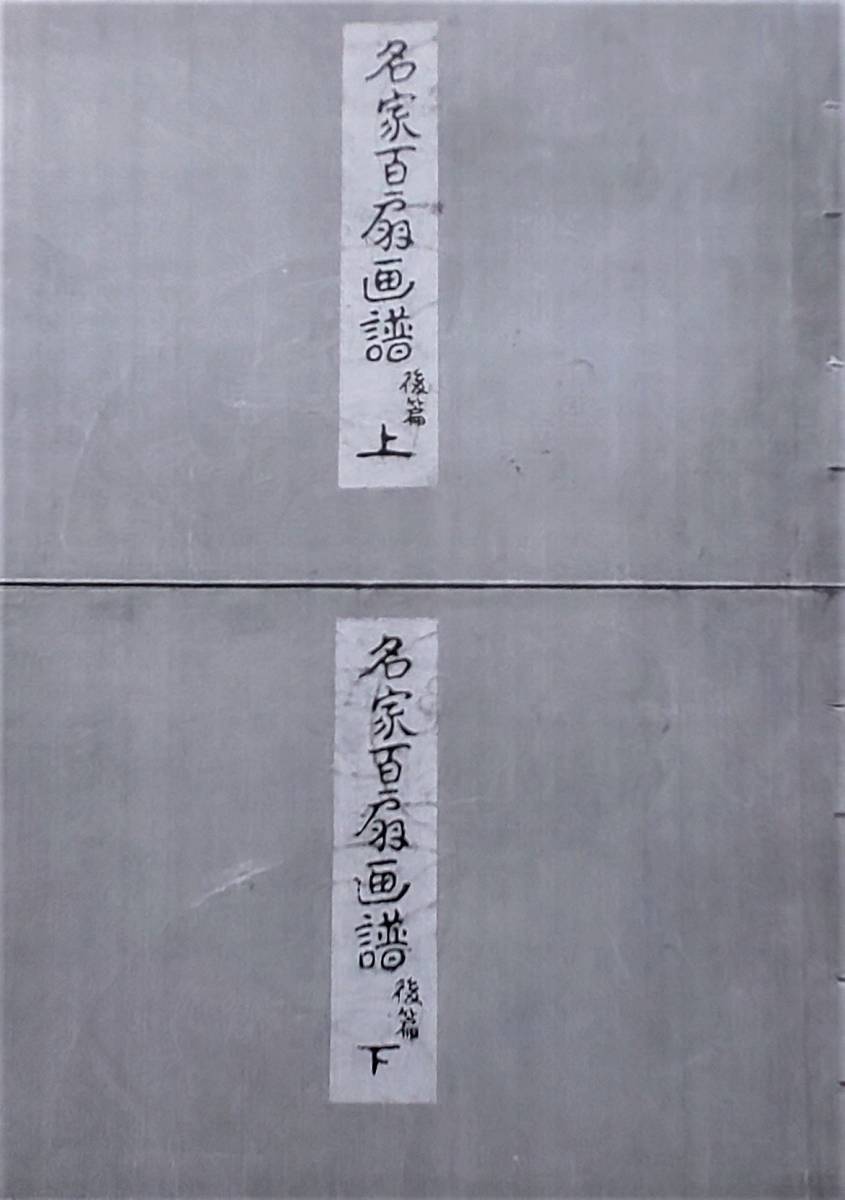 名家百扇画譜
後篇
上
名家百扇画譜
後篇
下